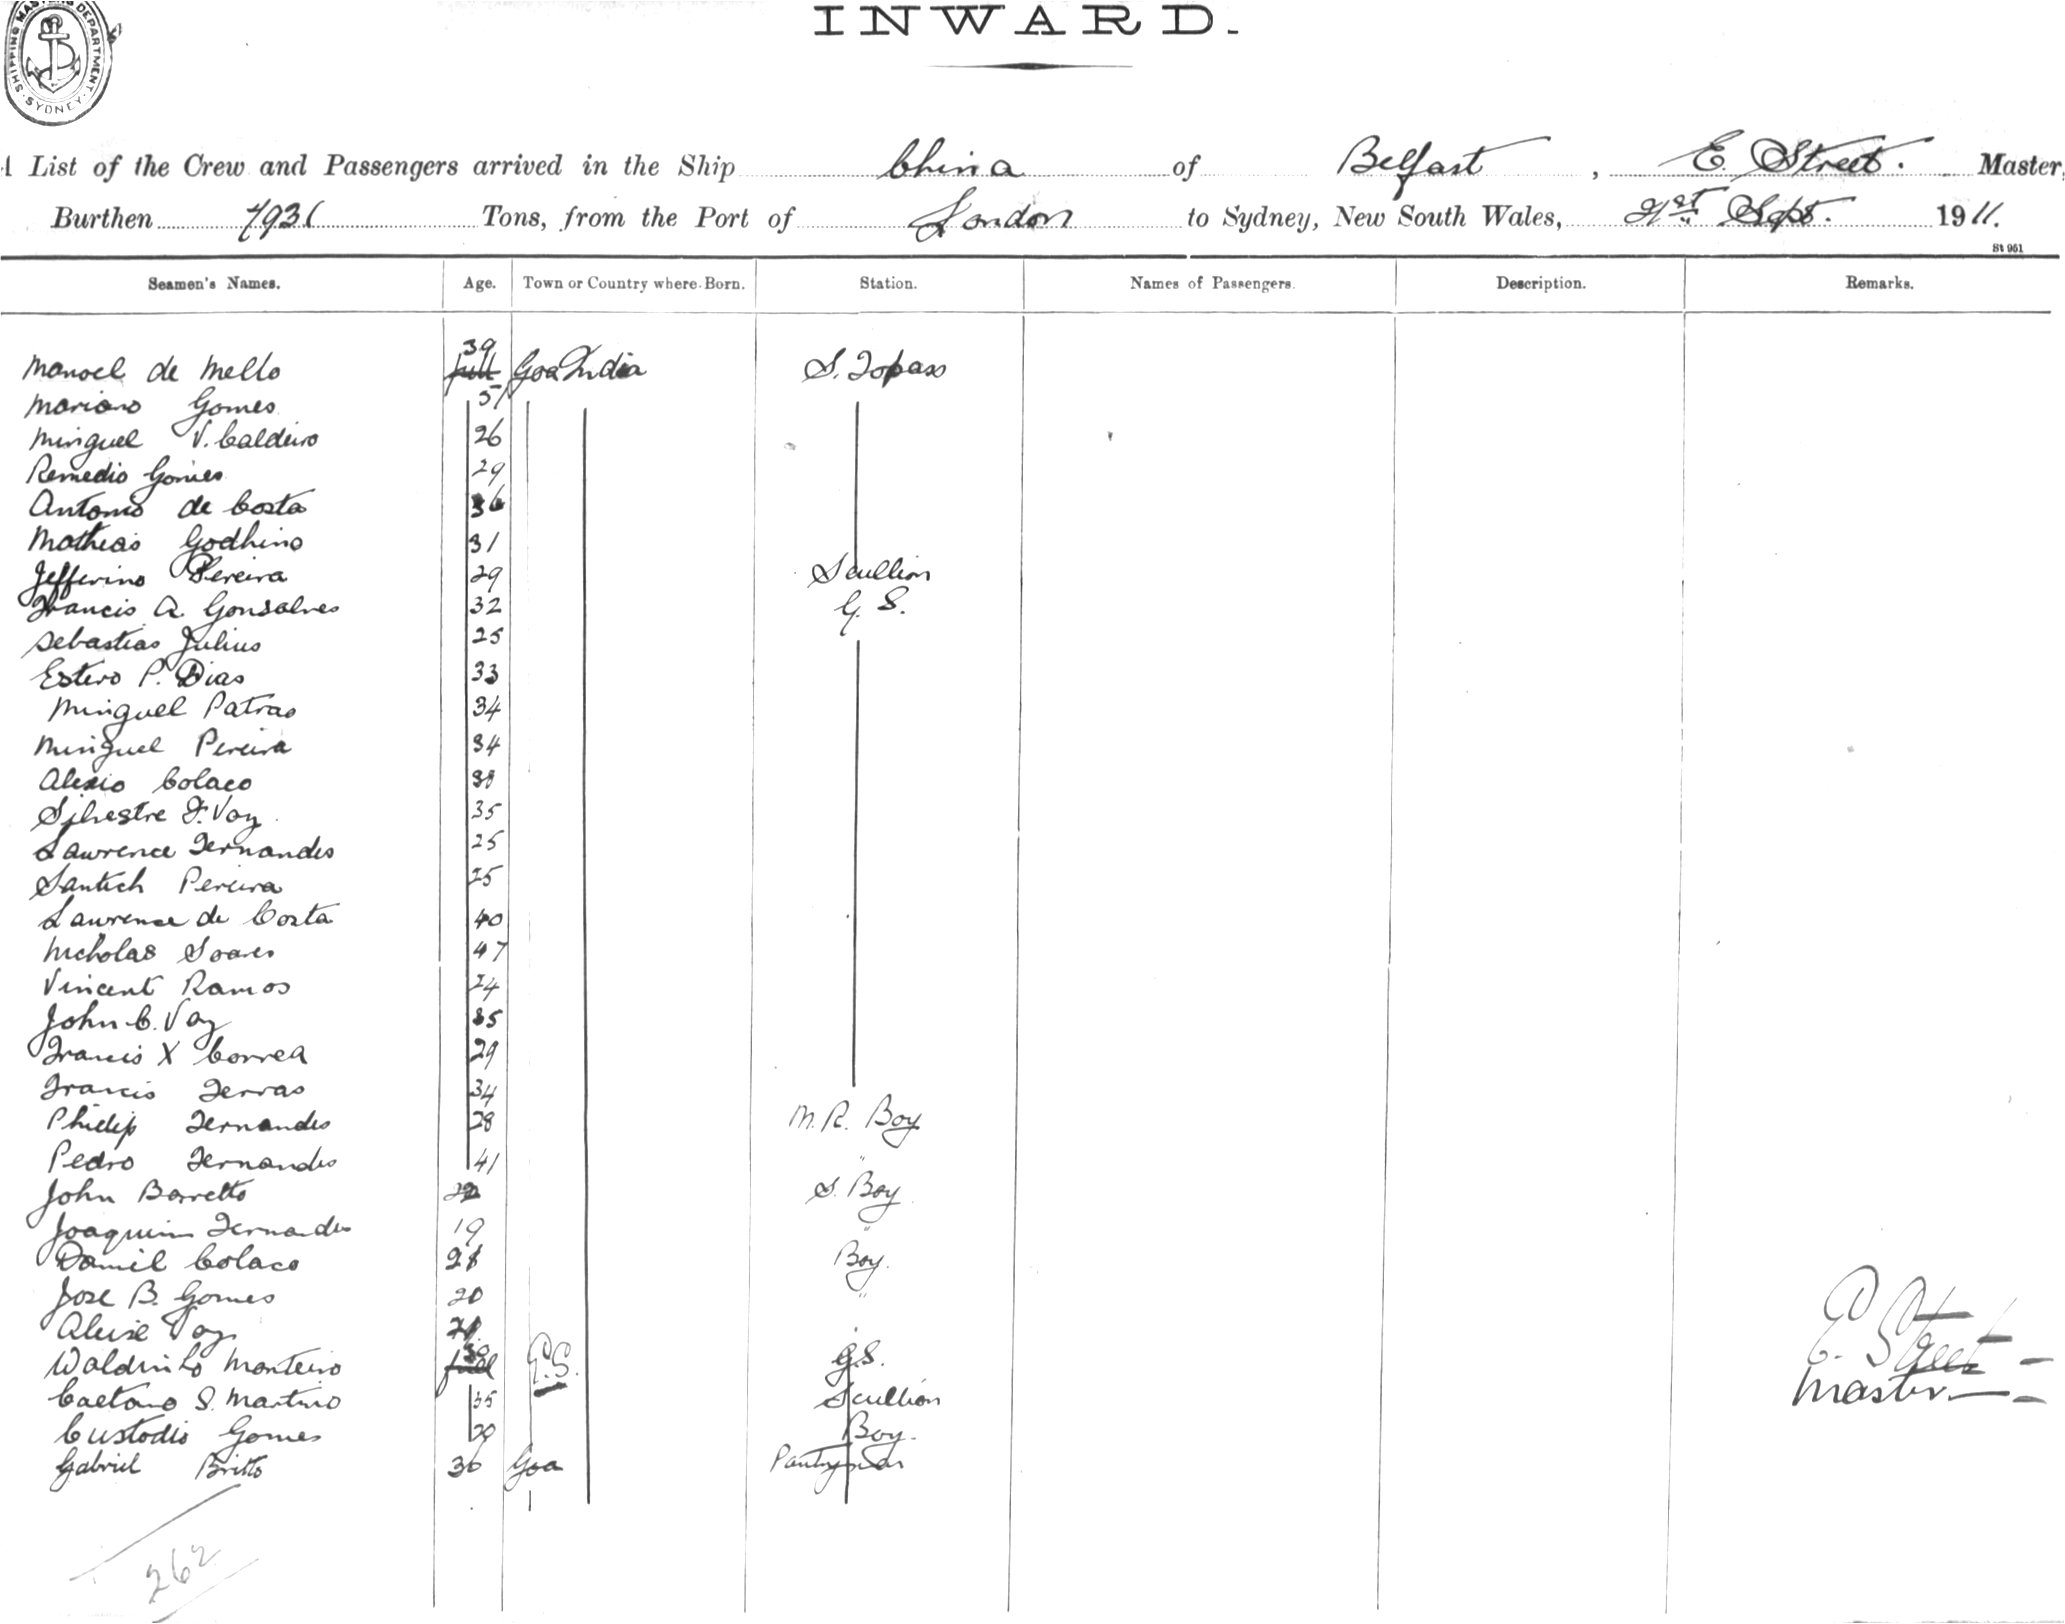 SHIPPING MASTERS DEPARTMENT. SYDNEY.
INWARD.
A List of the Crew and Passengers arrived in the Ship China of Belfast, E. Street. Master,
Burthen 7931 Tons, from the Port of London to Sydney, New South Wales, 21st Sept. 1911.
St 961
Seamen's Names. Age. Town or Country where Born. Station. Names of Passengers. Description. Remarks.
Manoel de Mello 39 Goa India S. Topass
Mariano Gomes 51
Minguel V. Caldeiro 26
Remedio Gomes 29
Antonio de Costa 36
Mathias Godhino 31
Jefferino Pereira 29 Scullion
Francis A. Gonsalves 32 G. S.
Sebastiao Julius 25
Estevo P. Dias 33
Minguel Patrao 34
Minguel Pereira 34
Alexio Colaco
Silvestre F. Vaz 35
Lawrence Fernandes 25
Santich Pereira 25
Lawrence de Costa 40
Nicholas Soares 47
Vincent Ramos 24
John C. Vaz 35
Francis X Correa 29
Francis Ferrao 34
Philip Fernandes 28 M. R. Boy
Pedro Fernandes 41 "
John Barretto 22 S. Boy
Joaquim Fernandes 19 "
Daniel Colaco 21 Boy.
Jose B. Gomes 20 "
Vaz 21
Monteiro 30 G.S.
Caetano S. Martino 35 Scullion
Custodio Gomes 20 Boy.
Gabriel Britto 36 Goa Pantryman
E. Street
Master
262